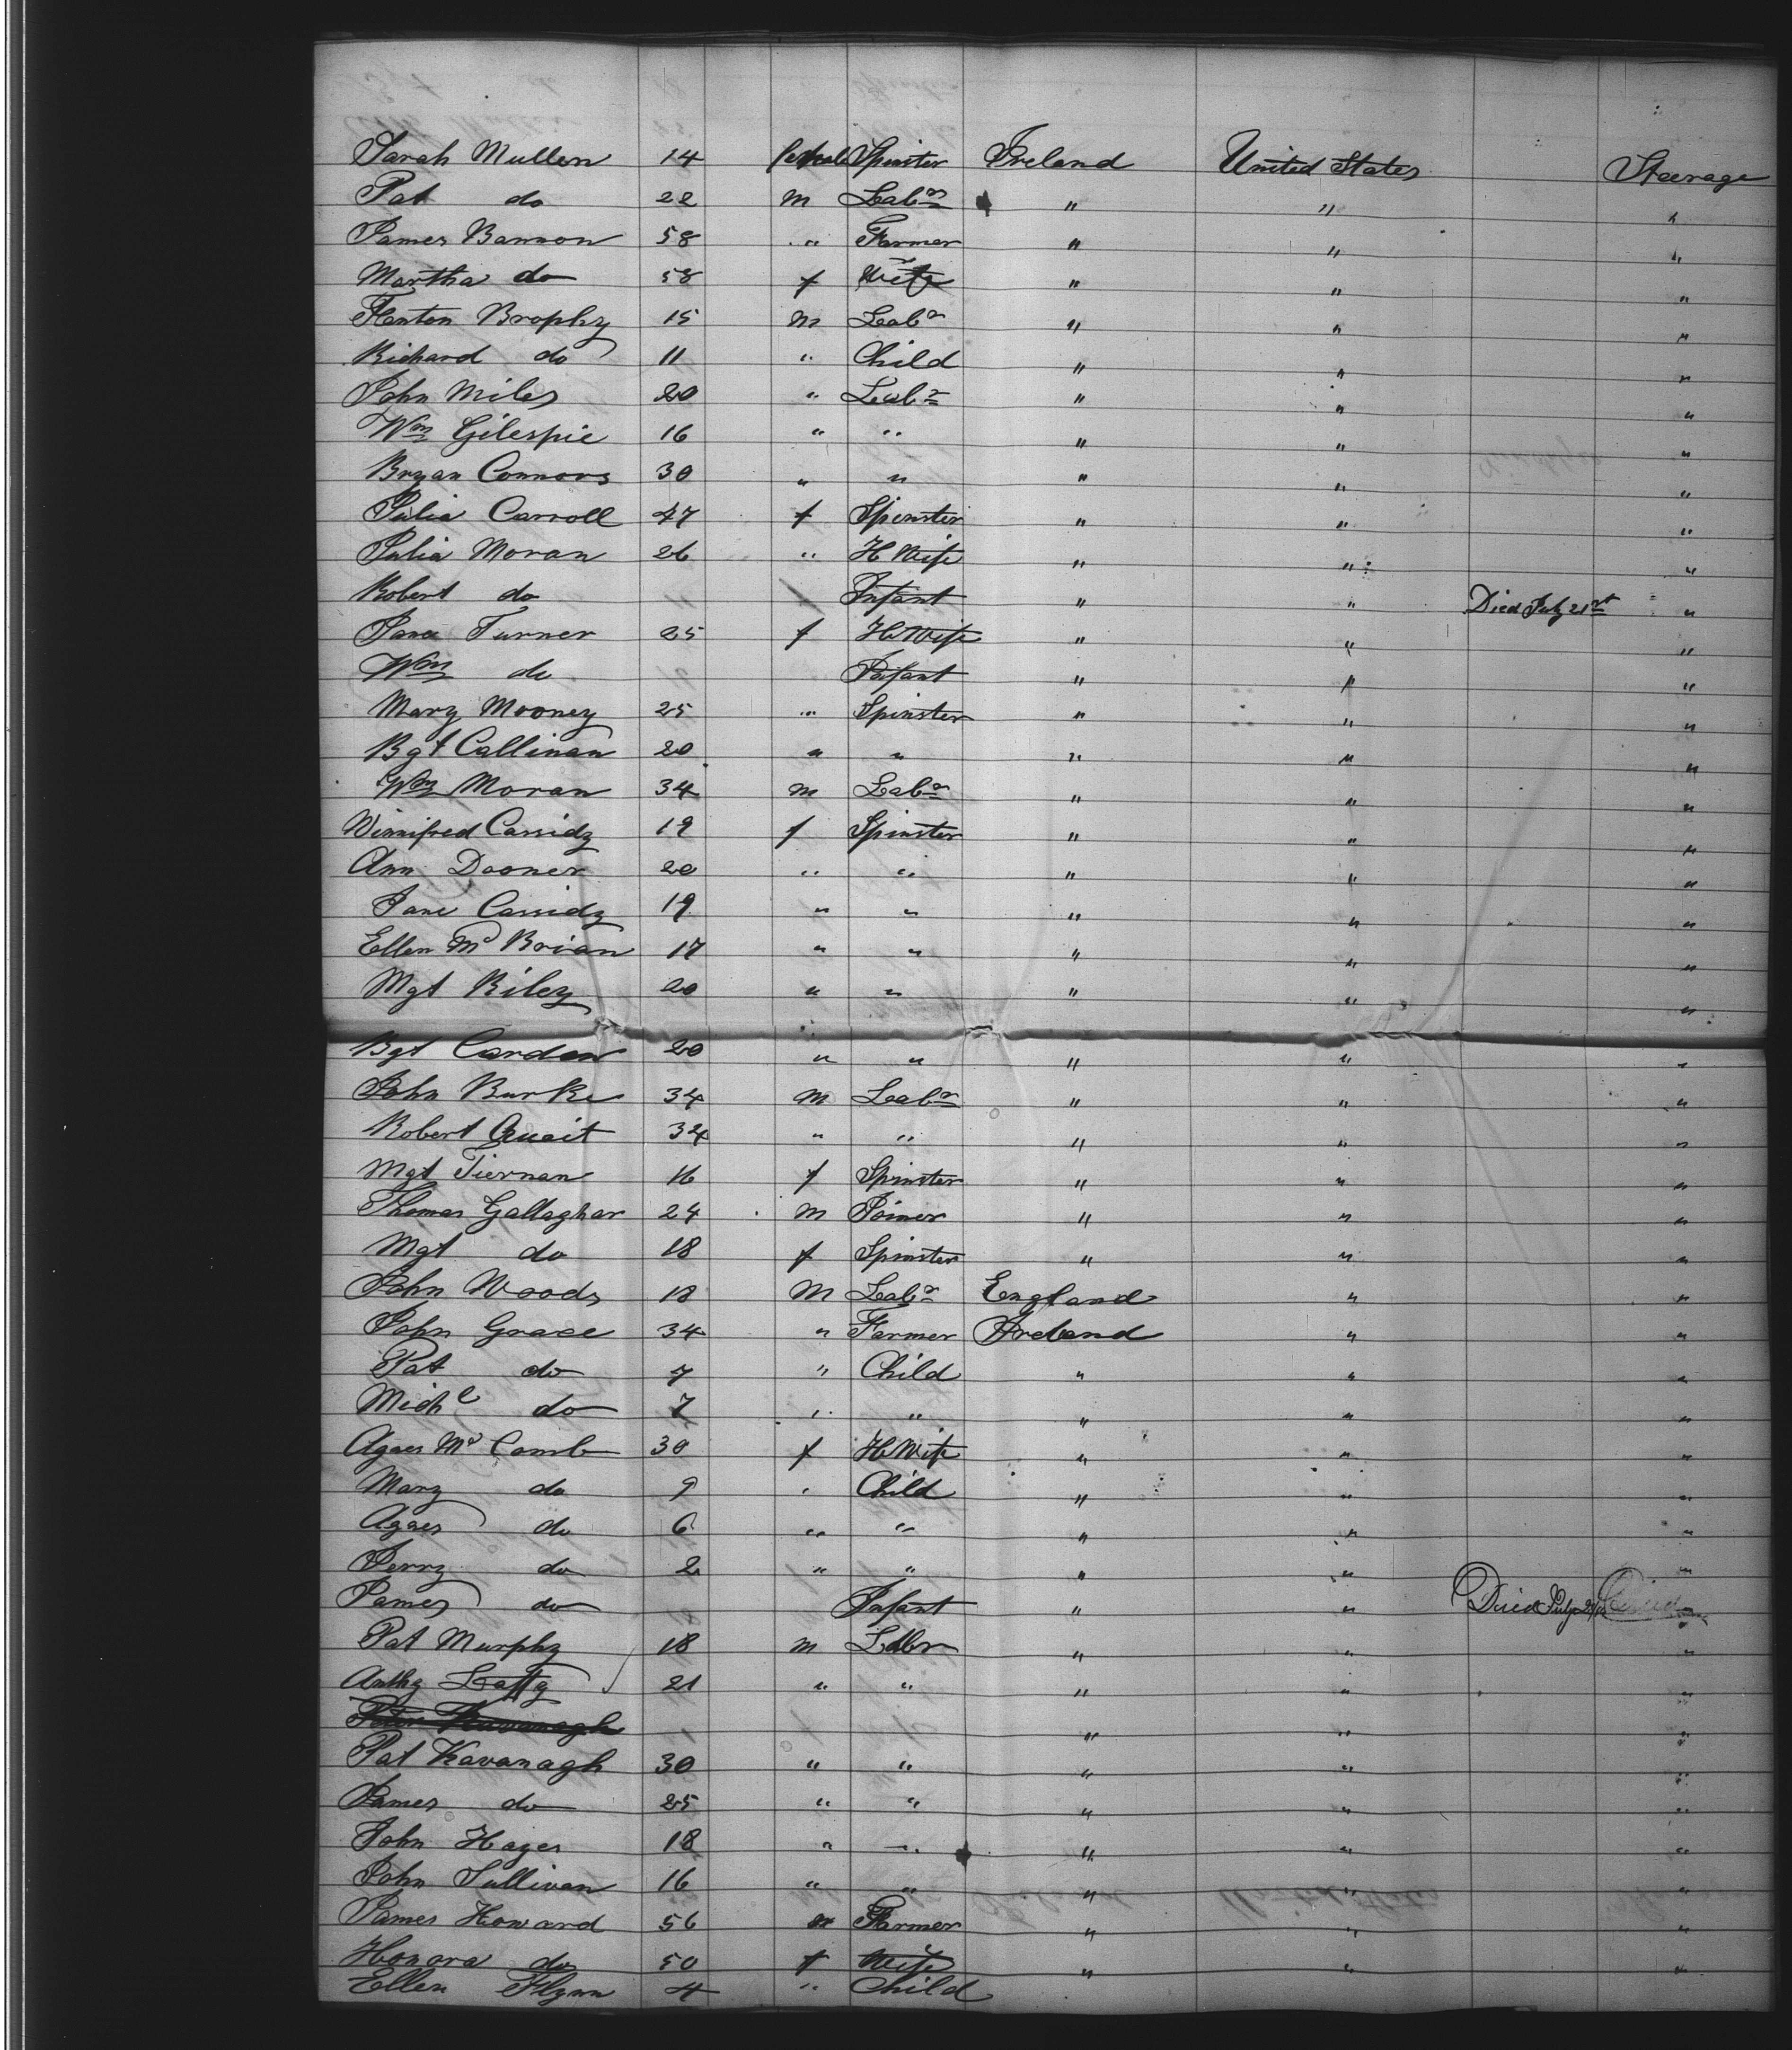 Sarah Mullen 14 female Spinster Ireland United States Steerage
Pat do 22 m Labr " " "
James Bannon 58 " Farmer " " "
Martha do 58 f Wife " " "
Fenton Brophy 15 m Labr " " "
Richard do 11 " Child " " "
John Miles 20 " Labr " " "
Wm Gilespie 16 " " " " "
Bryan Connors 30 " " " " "
Julia Carroll 47 f Spinster " " "
Julia Moran 26 " H Wife " " "
Robert do Infant " " Died July 21st "
Jane Turner 25 f H Wife " " "
Wm do Infant " " "
Mary Mooney 25 " Spinster " " "
Bgt Callinan 20 " " " " "
Wm Moran 34 m Labr " " "
Winnifred Cassidy 19 f Spinster " " "
Ann Dooner 20 " " " " "
Jane Cassidy 19 " " " " "
Ellen Mc Brian 17 " " " " "
Mgt Riley 20 " " " " "
Bgt Carden 20 " " " " "
John Burke 34 m Labr " " "
Robert Quait 34 " " " " "
Mgt Tiernan 16 f Spinster " " "
Thomas Gallaghar 24 m Joiner " " "
Mgt do 18 f Spinster " " "
John Woods 18 M Labr England " "
John Grace 34 " Farmer Ireland " "
Pat do 7 " Child " " "
Michl do 7 " " " " "
Agnes Mc Comb 30 f H Wife " " "
Mary do 9 " Child " " "
Agnes do 6 " " " " "
Jerry do 2 " " " " "
James do Infant " " Died July
Pat Murphy 18 m Labr " " "
Anthy Laffy 21 " " " " "
Peter Kavanagh " " "
Pat Kavanagh 30 " " " " "
James do 25 " " " " "
John Hayes 18 " " " " "
John Sullivan 16 " " " " "
James Howard 56 m Farmer " " "
Honora do 50 f Wife " " "
Ellen Flynn 4 " Child